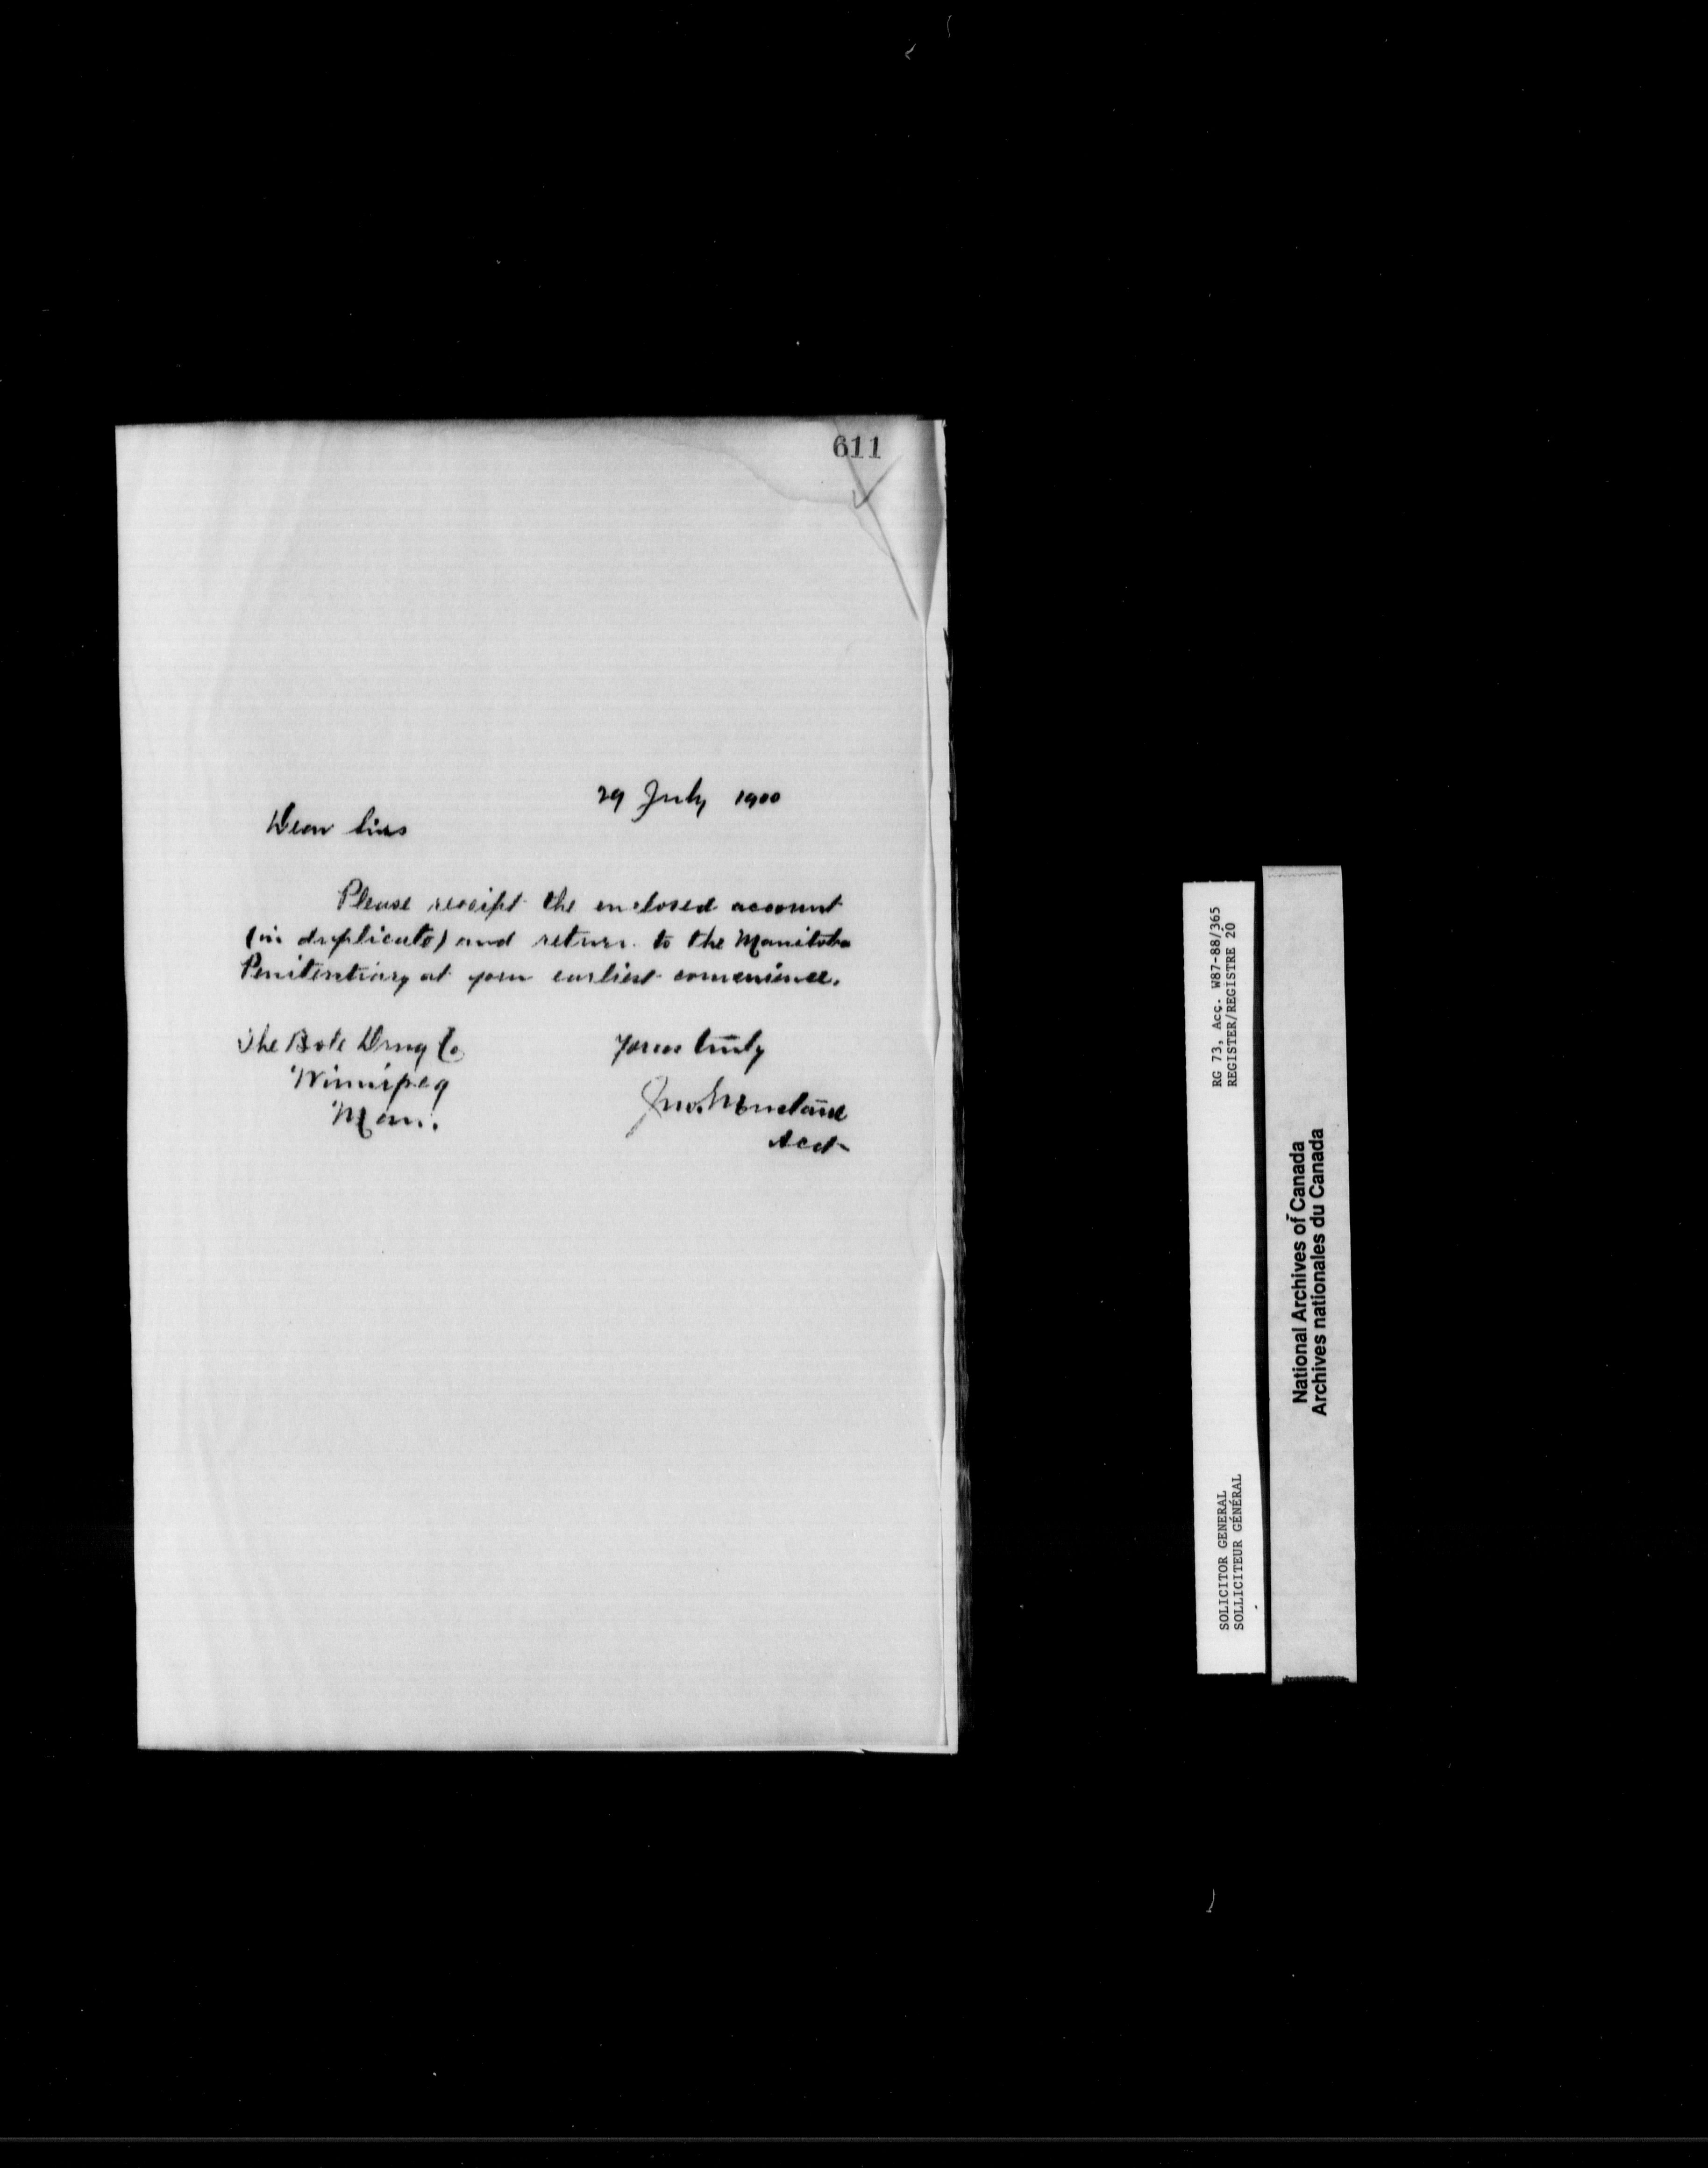 611
29 July 1900
Dear Sirs
Please receipt the enclosed account
(in duplicate) and return to the Manitoba
Penitentiary at your earliest convenience.
The Bole Drug Co
Winnipeg
Man.
Yours truly
Jno.
Acct
RG 73, Acc. W87-88/365
REGISTER/REGISTRE 20
SOLICITOR GENERAL
SOLLICITEUR GÉNÉRAL
National Archives of Canada
Archives nationales du Canada